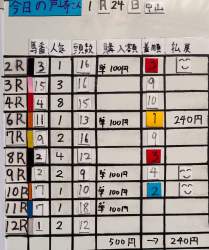 今日の戸崎さん 1月24日 中山
馬番 人気 頭数 購入額 着順 払戻
2R 3 1 16 単100円 3
3R 15 3 16 9
4R 4 8 15 10
6R 11 1 13 単100円 1 240円
7R 9 2 16 9
8R 2 4 12 3
9R 2 2 9 単100円 4
10R 7 1 10 単100円 2
11R 7 1 18 単100円
12R 1 2 12
500円 → 240円